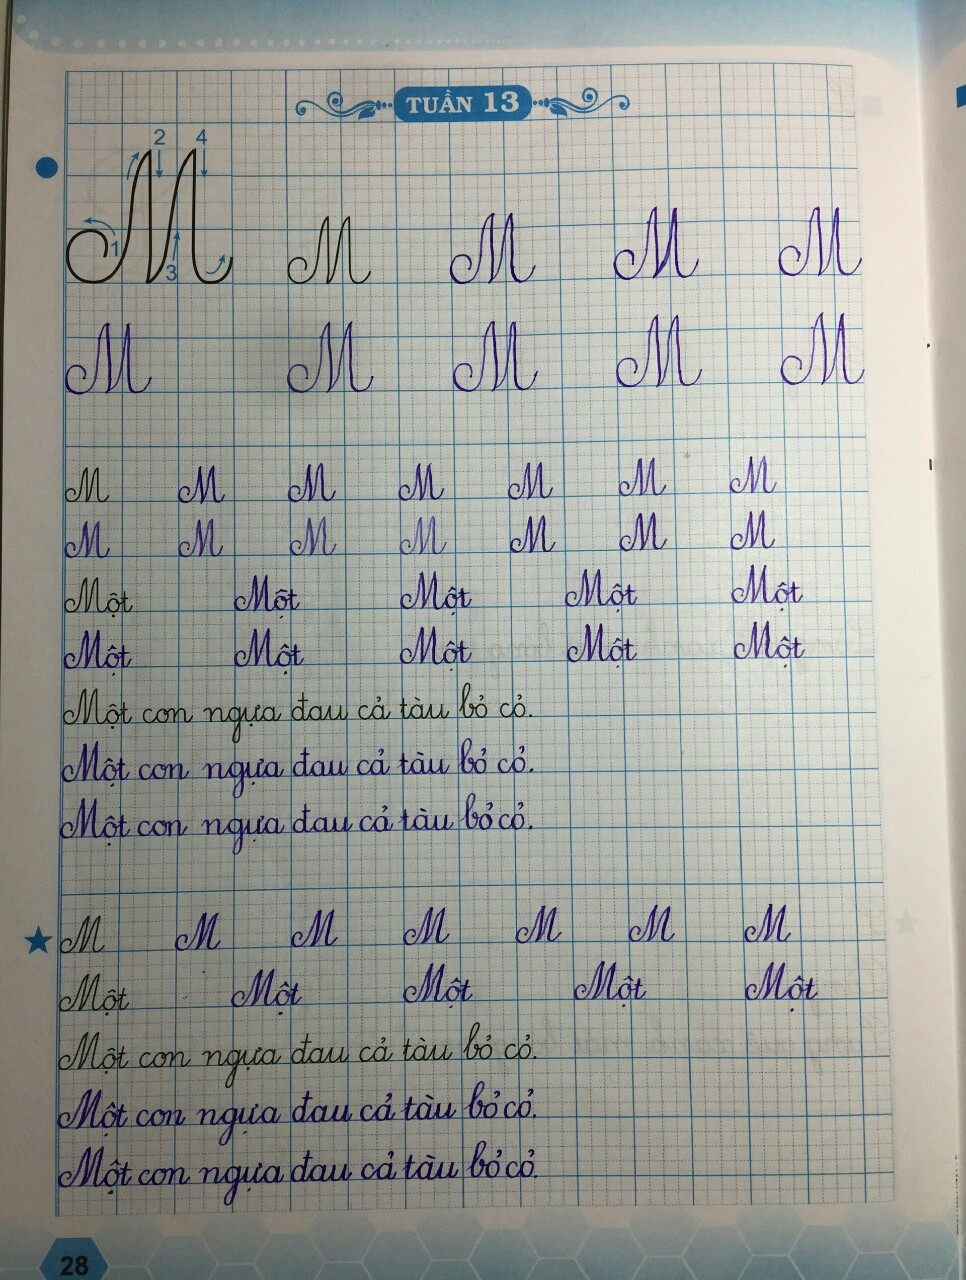 TUẦN 13
2 4
1
3
M M M M M
M M M M M
M M M M M M M
M M M M M M M
Một Một Một Một Một
Một Một Một Một Một
Một con ngựa đau cả tàu bỏ cỏ.
Một con ngựa đau cả tàu bỏ cỏ.
Một con ngựa đau cả tàu bỏ cỏ.
M M M M M M M
Một Một Một Một Một
Một con ngựa đau cả tàu bỏ cỏ.
Một con ngựa đau cả tàu bỏ cỏ.
Một con ngựa đau cả tàu bỏ cỏ.
28